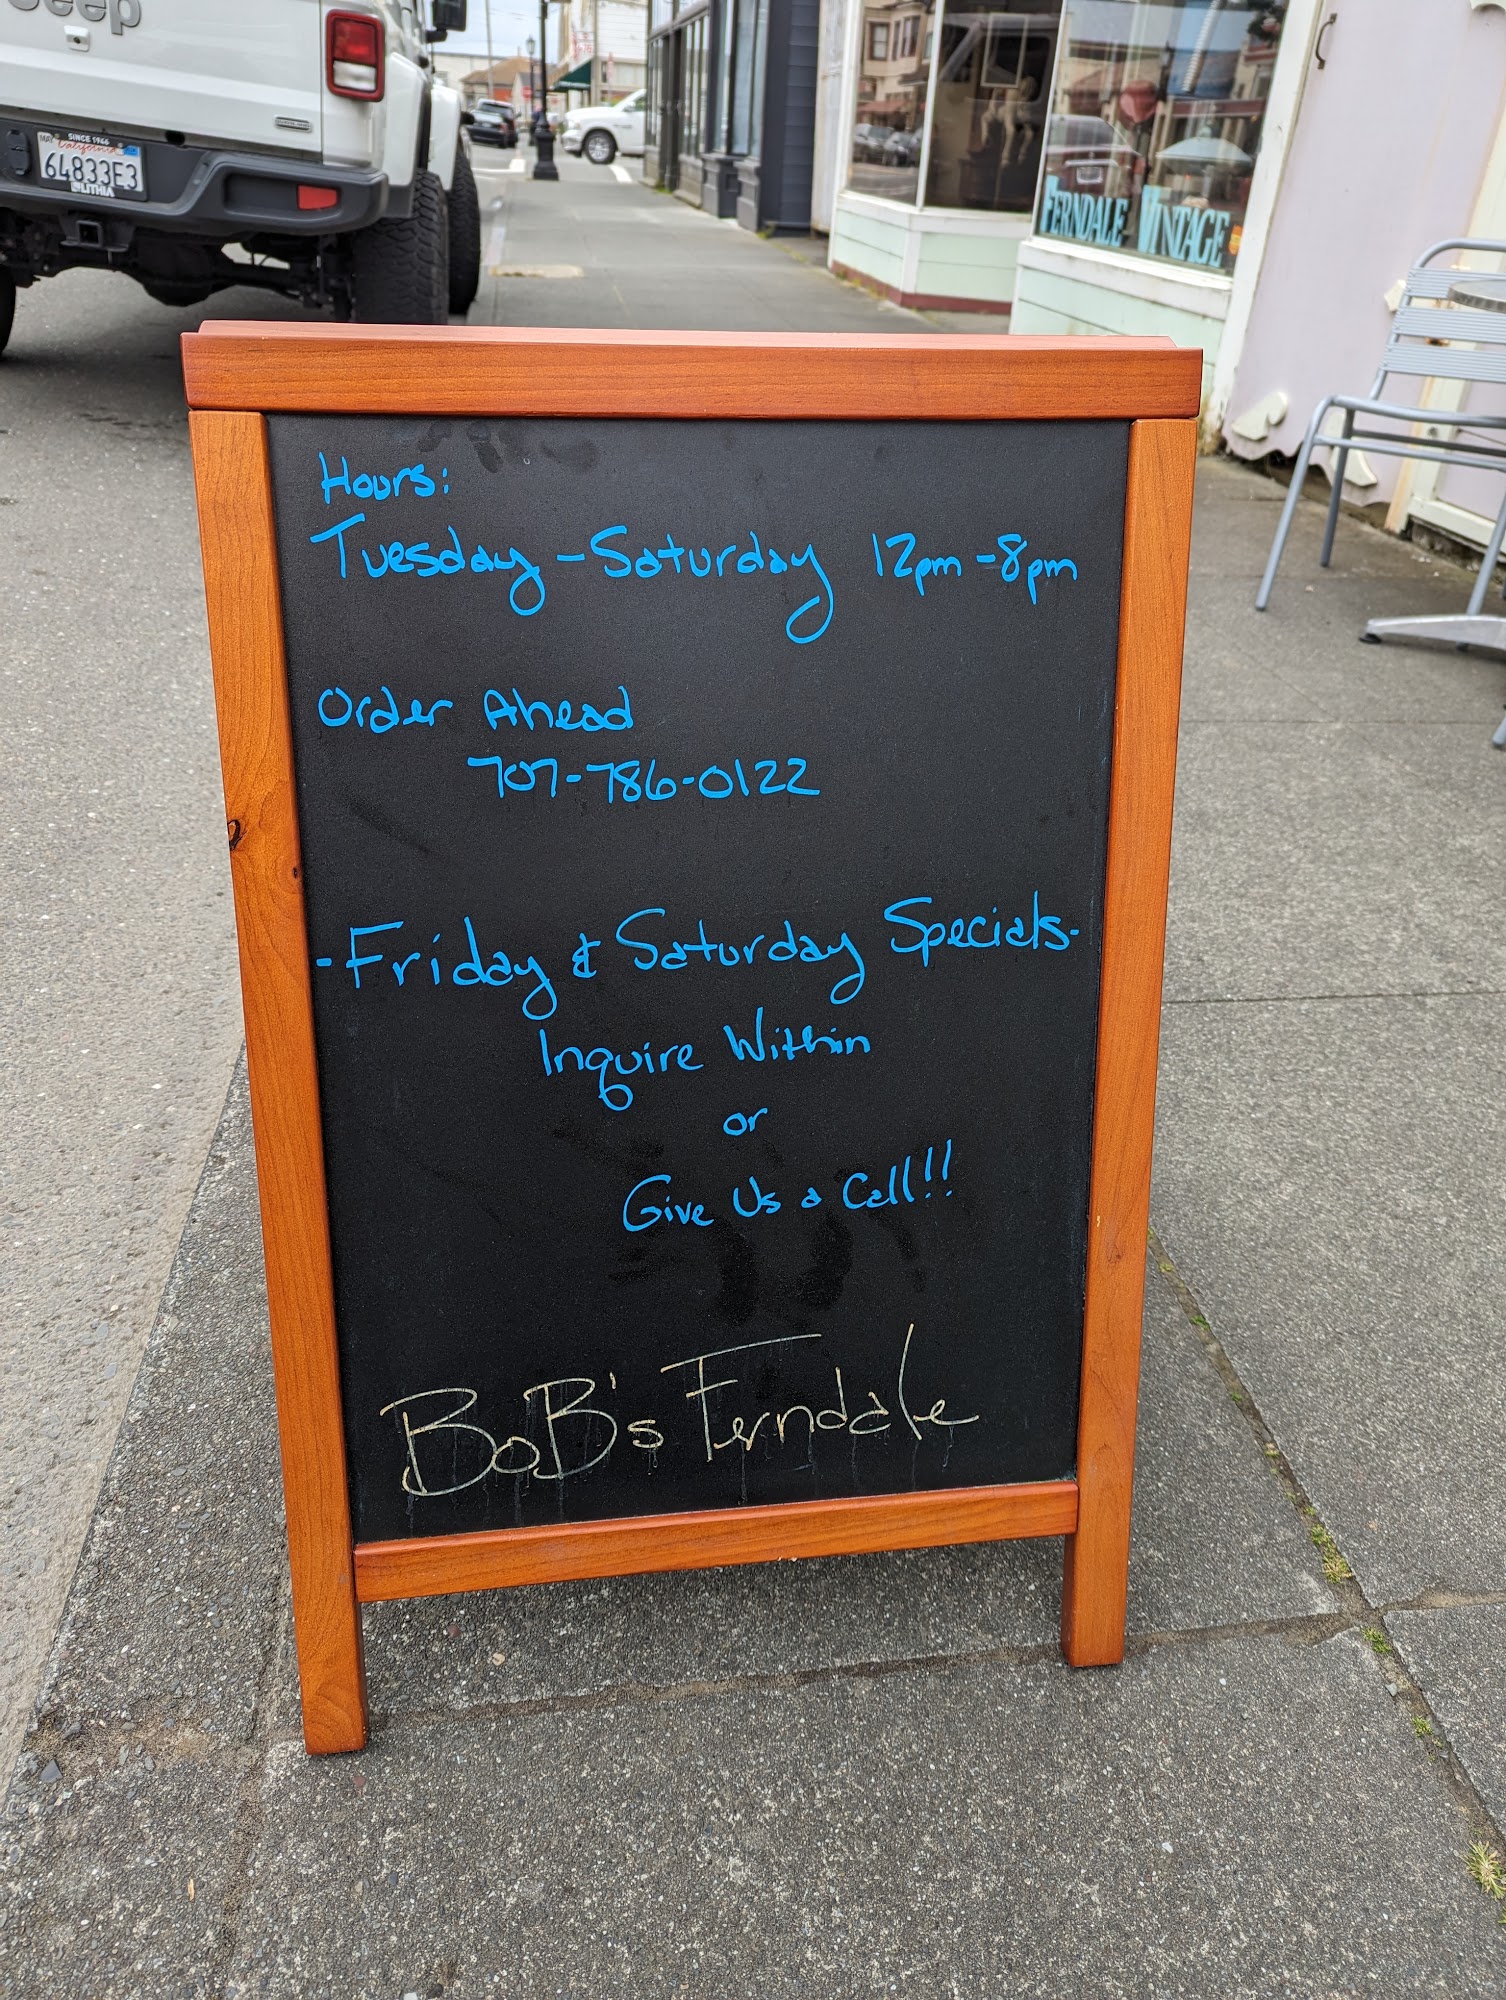 Jeep
SINCE 1946
California
64833E3
LITHIA
FERNDALE VINTAGE
Hours:
Tuesday - Saturday 12pm - 8pm
Order Ahead
707-786-0122
- Friday & Saturday Specials -
Inquire Within
or
Give Us a Call!!
BoB's Ferndale